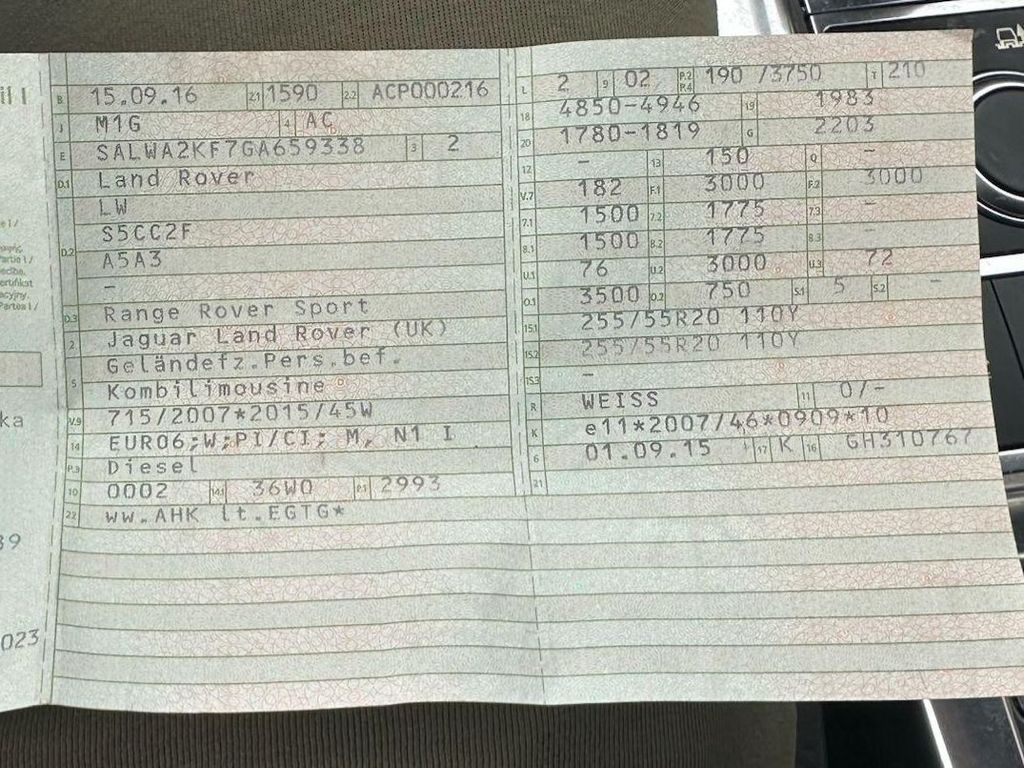 il I
B 15.09.16 2.1 1590 2.2 ACP000216
J M1G 4 AC
E SALWA2KF7GA659338 3 2
D.1 Land Rover
LW
D.2 S5CC2F
A5A3
-
D.3 Range Rover Sport
2 Jaguar Land Rover (UK)
5 Geländefz.Pers.bef.
Kombilimousine
V.9 715/2007*2015/45W
14 EURO6;W;PI/CI; M, N1 I
P.3 Diesel
10 0002 14.1 36W0 P.1 2993
22 ww.AHK lt.EGTG*
L 2 9 02 P.2 P.4 190 /3750 T 210
18 4850-4946 19 1983
20 1780-1819 G 2203
12 - 13 150 Q -
V.7 182 F.1 3000 F.2 3000
7.1 1500 7.2 1775 7.3 -
8.1 1500 8.2 1775 8.3 -
U.1 76 U.2 3000 U.3 72
O.1 3500 O.2 750 S.1 5 S.2 -
15.1 255/55R20 110Y
15.2 255/55R20 110Y
15.3 -
R WEISS 11 0/-
K e11*2007/46*0909*10
6 01.09.15 17 K 16 GH310767
21
ka
39
023